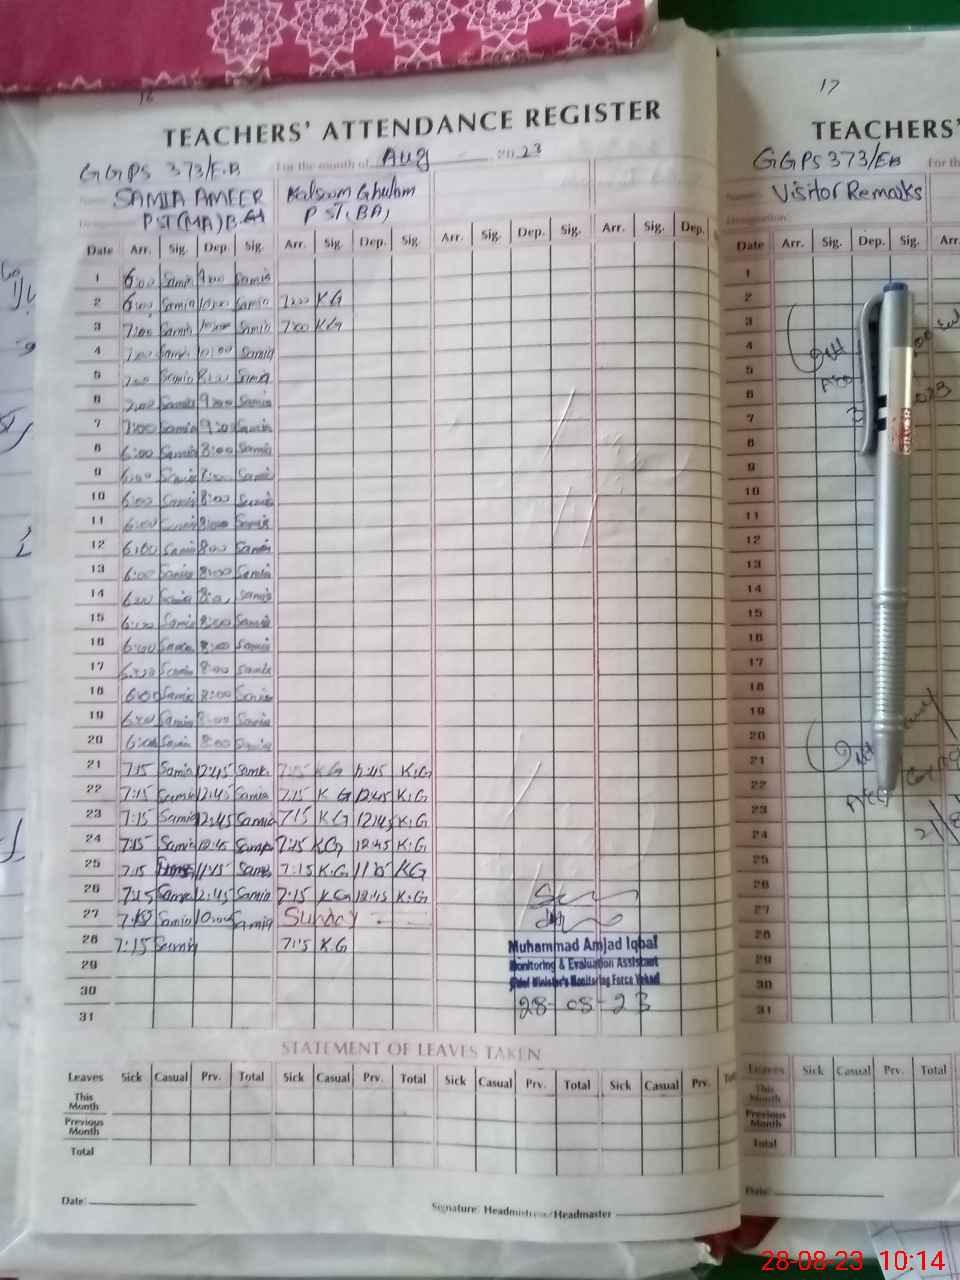 16
TEACHERS' ATTENDANCE REGISTER
GGPS 373/EB For the month of Aug 2023
SAMIA AMEER Kalsoom Ghulam
PST(MA)B.Ed PST(BA)
Date Arr. Sig. Dep. Sig. Arr. Sig. Dep. Sig. Arr. Sig. Dep. Sig. Arr. Sig. Dep.
1 6:00 Samia 9:00 Samia
2 6:00 Samia 10:00 Samia 7:00 KG
3 7:00 Samia 10:00 Samia 7:00 KG
4 7:00 Samia 10:00 Samia
5 7:00 Samia 8:00 Samia
6 7:00 Samia 9:00 Samia
7 7:00 Samia 9:00 Samia
8 6:00 Samia 8:00 Samia
9 6:00 Samia 8:00 Samia
10 6:00 Samia 8:00 Samia
11 6:00 Samia 8:00 Samia
12 6:00 Samia 8:00 Samia
13 6:00 Samia 8:00 Samia
14 6:00 Samia 8:00 Samia
15 6:00 Samia 8:00 Samia
16 6:00 Samia 8:00 Samia
17 6:00 Samia 8:00 Samia
18 6:00 Samia 8:00 Samia
19 6:00 Samia 8:00 Samia
20 6:00 Samia 8:00 Samia
21 7:15 Samia 12:45 Samia 7:15 KG 12:45 K.G
22 7:15 Samia 12:45 Samia 7:15 KG 12:45 K.G
23 7:15 Samia 12:45 Samia 7:15 KG 12:45 K.G
24 7:15 Samia 12:45 Samia 7:15 KG 12:45 K.G
25 7:15 11:15 Samia 7:15 K.G 11:15 KG
26 7:15 Samia 12:45 Samia 7:15 KG 12:45 K.G
27 7:15 Samia 10:00 Samia Sunday
28 7:15 Samia 7:15 K.G
29
30
31
Muhammad Amjad Iqbal
Monitoring & Evaluation Assistant
Chief Minister's Monitoring Force Vehari
28-08-23
STATEMENT OF LEAVES TAKEN
Leaves Sick Casual Prv. Total Sick Casual Prv. Total Sick Casual Prv. Total Sick Casual Prv.
This Month
Previous Month
Total
Date: Signature: Headmistress/Headmaster
17
TEACHERS'
GGPS 373/EB For th
Name: Visitor Remarks
Designation:
Date Arr. Sig. Dep. Sig. Arr.
1
2
3
4
5
6
7
8
9
10
11
12
13
14
15
16
17
18
19
20
21
22
23
24
25
26
27
28
29
30
31
Leaves Sick Casual Prv. Total
This Month
Previous Month
Total
Date:
28-08-23 10:14